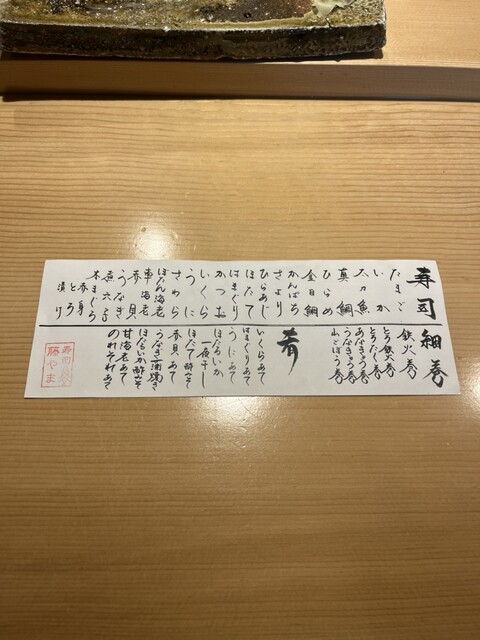 寿司
たまご
いか
太刀魚
真鯛
ひらめ
金目鯛
かんぱち
さより
ひらあじ
ほたて
はまぐり
かつお
いくら
うに
さわら
ぼたん海老
車海老
赤貝
うなぎ
煮穴子
本まぐろ
赤身
とろ
漬け
細巻
鉄火巻
とろ鉄火巻
とろたく巻
あなきゅう巻
うなきゅう巻
山ごぼう巻
肴
いくらあて
はまぐりあて
うにあて
ほたるいか
一夜干し
ほたて酢みそ
赤貝あて
うなぎ蒲焼き
ほたるいか酢みそ
甘海老あて
のれそれあて
寿司
藤やま